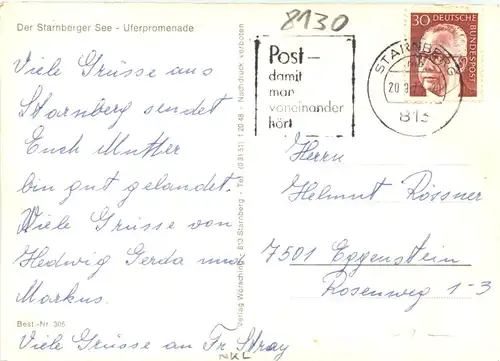 Der Starnberger See - Uferpromenade
Viele Grüsse aus
Starnberg sendet
Euch Mutter
bin gut gelandet.
Viele Grüsse von
Hedwig Gerda und
Markus.
Best.-Nr. 305
Viele Grüsse an Fr. Stray
NKL
Verlag Wörsching 813 Starnberg - Tel. (08151) 12048 - Nachdruck verboten
8130
Post –
damit
man
voneinander
hört
STARNBERG
20.9.7
813
30 DEUTSCHE
BUNDESPOST
Herrn
Helmut Rössner
7501 Eggenstein
Rosenweg 1-3